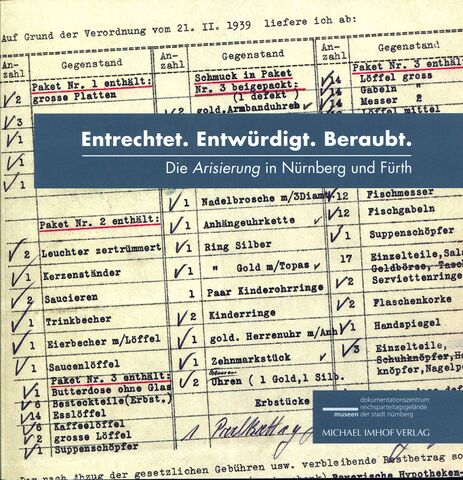 Auf Grund der Verordnung vom 21. II. 1939 liefere ich ab:
An-
zahl
Gegenstand
Paket Nr. 1 enthält:
2 grosse Platten
3
1
1
1
Paket Nr. 2 enthält:
2 Leuchter zertrümmert
1 Kerzenständer
2 Saucieren
1 Trinkbecher
1 Eierbecher m/Löffel
1 Saucenlöffel
Paket Nr. 3 enthält:
1 Butterdose ohne Glas
6 Besteckteile(Erbst.)
14 Esslöffel
6 Kaffelöffel
2 grosse Löffel
1 Suppenschöpfer
An-
zahl
Gegenstand
Schmuck in Paket
Nr. 3 beigepackt:
(1 defekt)
2 gold.Armbanduhren
1 Nadelbrosche m/3Diamt.
1 Anhängeuhrkette
1 Ring Silber
1 " Gold m/Topas
1 Paar Kinderohrringe
2 Kinderringe
1 gold. Herrenuhr m/Anh
1 Zehnmarkstück
2 Uhren ( 1 Gold,1 Silb.
Erbstücke
1
An-
zahl
Gegenstand
Paket Nr. 3 enthält
14 Löffel gross
14 Gabeln "
14 Messer 2
Löffel mittel
12 Fischmesser
12 Fischgabeln
1 Suppenschöpfer
17 Einzelteile,Sal
Geldbörse, Tasch
2 Serviettenringe
2 Flaschenkorke
1 Handspiegel
3 Einzelteile,
Schuhknöpfer,He
knöpfer,Nagelp
Entrechtet. Entwürdigt. Beraubt.
Die Arisierung in Nürnberg und Fürth
dokumentationszentrum
reichsparteitagsgelände
museen der stadt nürnberg
MICHAEL IMHOF VERLAG
Der nach Abzug der gesetzlichen Gebühren usw. verbleibende Restbetrag so
Bayerische Hypotheken-